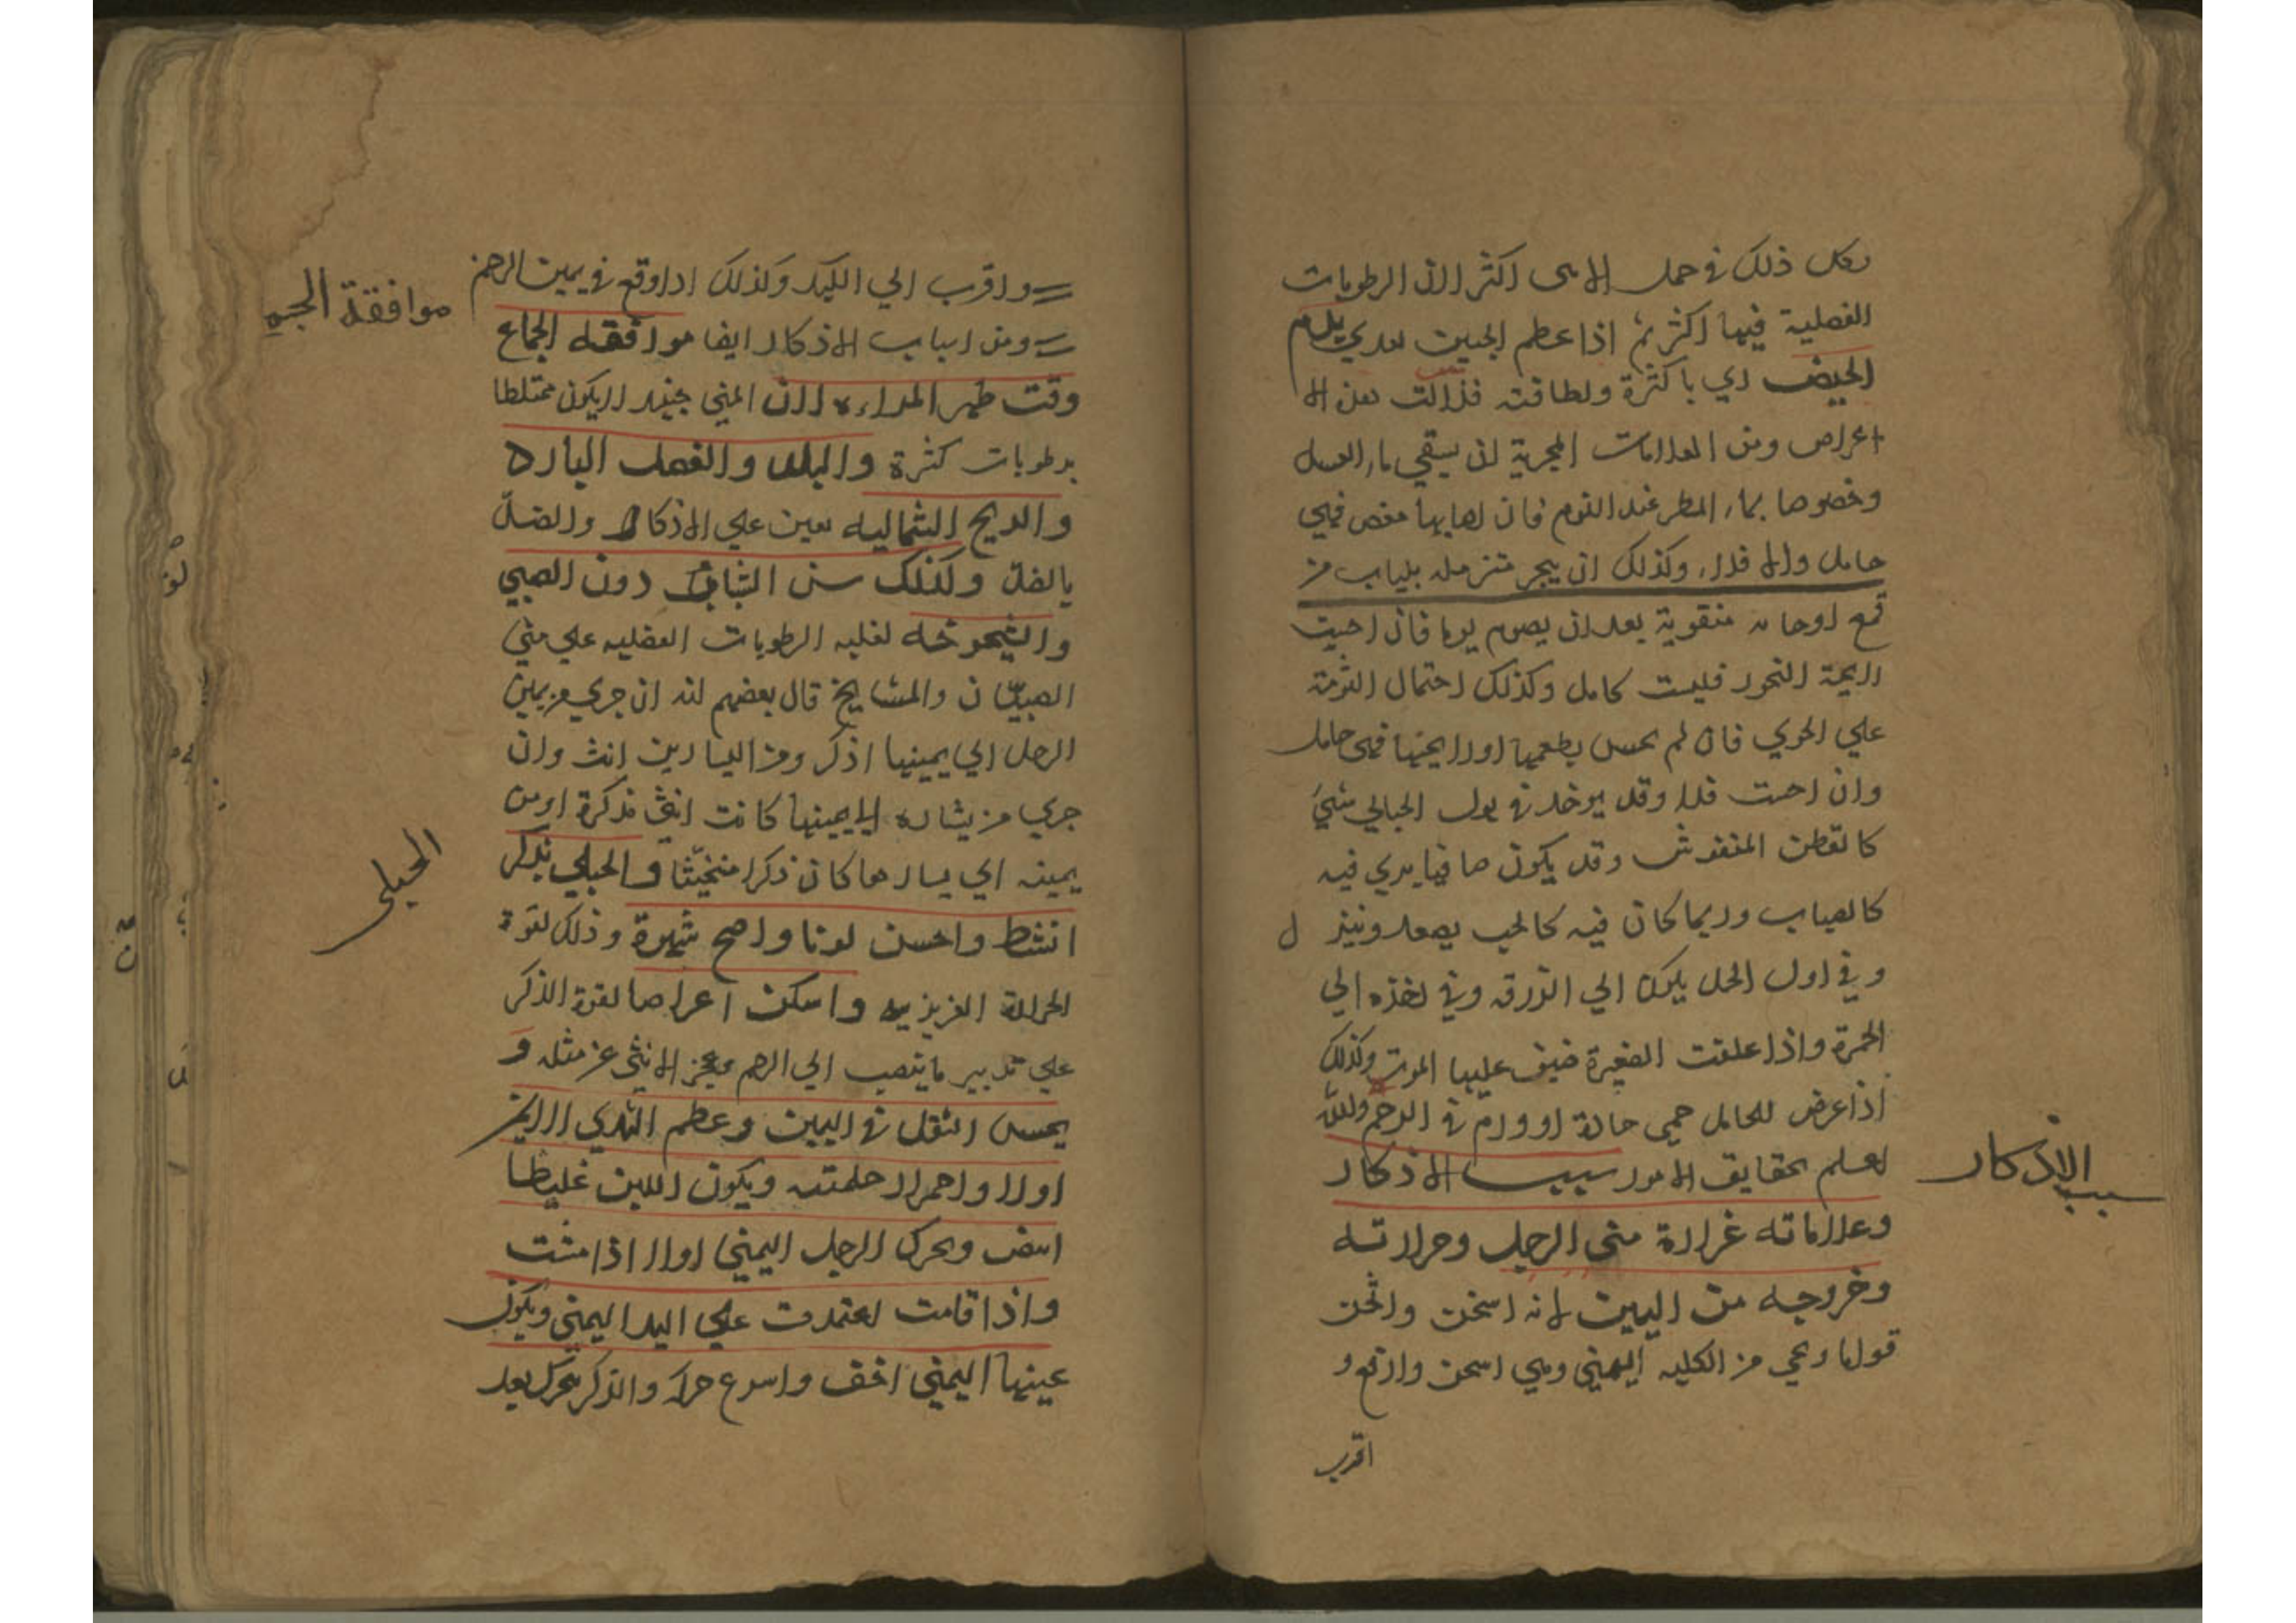 وكل ذلك في حمل الانثى اكثر لان الرطوبات
الفضلية فيها اكثر ثم اذا عظم الجنين
الحيض اي باكثرة ولطافته فزالت هذه الا
اعراض ومن العلامات المجربة ان يسقي ماء العسل
وخصوصا بماء المطر عند النوم فان اصابها مغص فهي
حامل والا فلا، وكذلك ان يبخر متزمله بثياب من
قمع او منقوبة بعد ان يصوم يوما فان احست
رايحة البخور فليست حامل وكذلك احتمال الثومة
علي الخوي فان لم تحس بطعمها او رايحتها فهي حامل
وان احست فلا وقد يوخد في بول الحبالي شيئ
كالقطن المنفوش وقد يكون صافيا يري فيه
كالضباب وربما كان فيه كالحب يصعد وينز ل
وفي اول الحمل يكون الي الزرقه وفي اخذه الي
الحمرة واذا علقت الصغيرة خيف عليها الموت وكذلك
اذا عرض للحامل حمي حادة او ورم في الرحم والله
اعلم بحقايق الامور سبب الاذكار
وعلاماته غزارة مني الرجل وحرارته
وخروجه من اليمين لانه اسخن واثخن
قواما وهي من الكليه اليمني وهي اسخن وارفع و
اقرب
سبب الاذكار
واقرب الي الكبد وكذلك اذا وقع في يمين الرحم
ومن اسباب الاذكار ايضا موافقه الجماع
وقت طهر المراءه لان المني حينئذ لا يكون مختلطا
برطوبات كثرة والبلد والفصل البارد
والريح الشماليه تعين علي الاذكار والضد
بالضد وكذلك سن الشباب دون الصبي
والشيخوخه لغلبه الرطوبات الفضليه علي مني
الصبيان والمشايخ قال بعضهم انه ان جري من يمين
الرجل الي يمينها اذكر ومن اليسارين انث وان
جري من يساره الي يمينها كانت انثي مذكرة او من
يمينه الي يسارها كان ذكرا مخنثا والحبلي بذكر
انشط واحسن لونا واصح شهوة وذلك لقوة
الحرارة الغريزيه واسكن اعراضا لقوة الذكر
علي تدبير ما ينصب الي الرحم وعجز الانثي عن مثله و
يحس الثقل في اليمين وعظم الثدي الايمن
اولا واحمرار حلمته ويكون اللبن غليظا
ابيض وتحرك الرجل اليمني اولا اذا مشت
واذا قامت اعتمدت علي اليد اليمني ويكون
عينها اليمني اخف واسرع حركة والذكر يتحرك بعد
موافقة
الحبلى